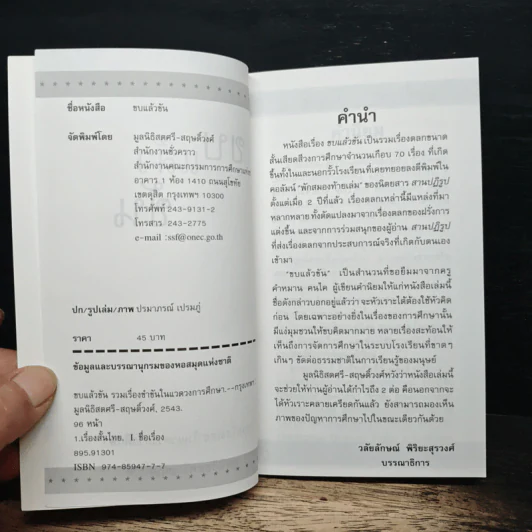 ชื่อหนังสือ ขบแล้วขัน
จัดพิมพ์โดย มูลนิธิสดศรี-สฤษดิ์วงศ์
สำนักงานชั่วคราว
สำนักงานคณะกรรมการการศึกษาแห่งชาติ
อาคาร 1 ห้อง 1410 ถนนสุโขทัย
เขตดุสิต กรุงเทพฯ 10300
โทรศัพท์ 243-9131-2
โทรสาร 243-2775
e-mail :ssf@onec.go.th
ปก/รูปเล่ม/ภาพ ปรมาภรณ์ เปรมภู่
ราคา 45 บาท
ข้อมูลและบรรณานุกรมของหอสมุดแห่งชาติ
ขบแล้วขัน รวมเรื่องขำขันในแวดวงการศึกษา.--กรุงเทพฯ
มูลนิธิสดศรี-สฤษดิ์วงศ์, 2543.
96 หน้า
1.เรื่องสั้นไทย. I. ชื่อเรื่อง
895.91301
ISBN 974-85947-7-7
คำนำ
หนังสือเรื่อง ขบแล้วขัน เป็นรวมเรื่องตลกขนาด
สั้นเสียดสีวงการศึกษาจำนวนเกือบ 70 เรื่อง ที่เกิด
ขึ้นทั้งในและนอกรั้วโรงเรียนที่เคยทยอยลงตีพิมพ์ใน
คอลัมน์ "พักสมองท้ายเล่ม" ของนิตยสาร สานปฏิรูป
ตั้งแต่เมื่อ 2 ปีที่แล้ว เรื่องตลกเหล่านี้มีแหล่งที่มา
หลากหลาย ทั้งดัดแปลงมาจากเรื่องตลกของฝรั่งการ
แต่งขึ้น และจากการร่วมสนุกของผู้อ่าน สานปฏิรูป
ที่ส่งเรื่องตลกจากประสบการณ์จริงที่เกิดกับตนเอง
เข้ามา
"ขบแล้วขัน" เป็นสำนวนที่ขอยืมมาจากครู
คำหมาน คนไค ผู้เขียนคำนิยมให้แก่หนังสือเล่มนี้
ชื่อดังกล่าวบอกอยู่แล้วว่า จะหัวเราะได้ต้องใช้หัวคิด
ก่อน โดยเฉพาะอย่างยิ่งในเรื่องของการศึกษานั้น
มีแง่มุมชวนให้ขบคิดมากมาย หลายเรื่องสะท้อนให้
เห็นถึงการจัดการศึกษาในระบบโรงเรียนที่ขาดๆ
เกินๆ ขัดต่อธรรมชาติในการเรียนรู้ของมนุษย์
มูลนิธิสดศรี-สฤษดิ์วงศ์หวังว่าหนังสือเล่มนี้
จะช่วยให้ท่านผู้อ่านได้กำไรถึง 2 ต่อ คือนอกจากจะ
ได้หัวเราะคลายเครียดกันแล้ว ยังสามารถมองเห็น
ภาพของปัญหาการศึกษาไปในขณะเดียวกันด้วย
วลัยลักษณ์ พิริยะสุรวงศ์
บรรณาธิการ